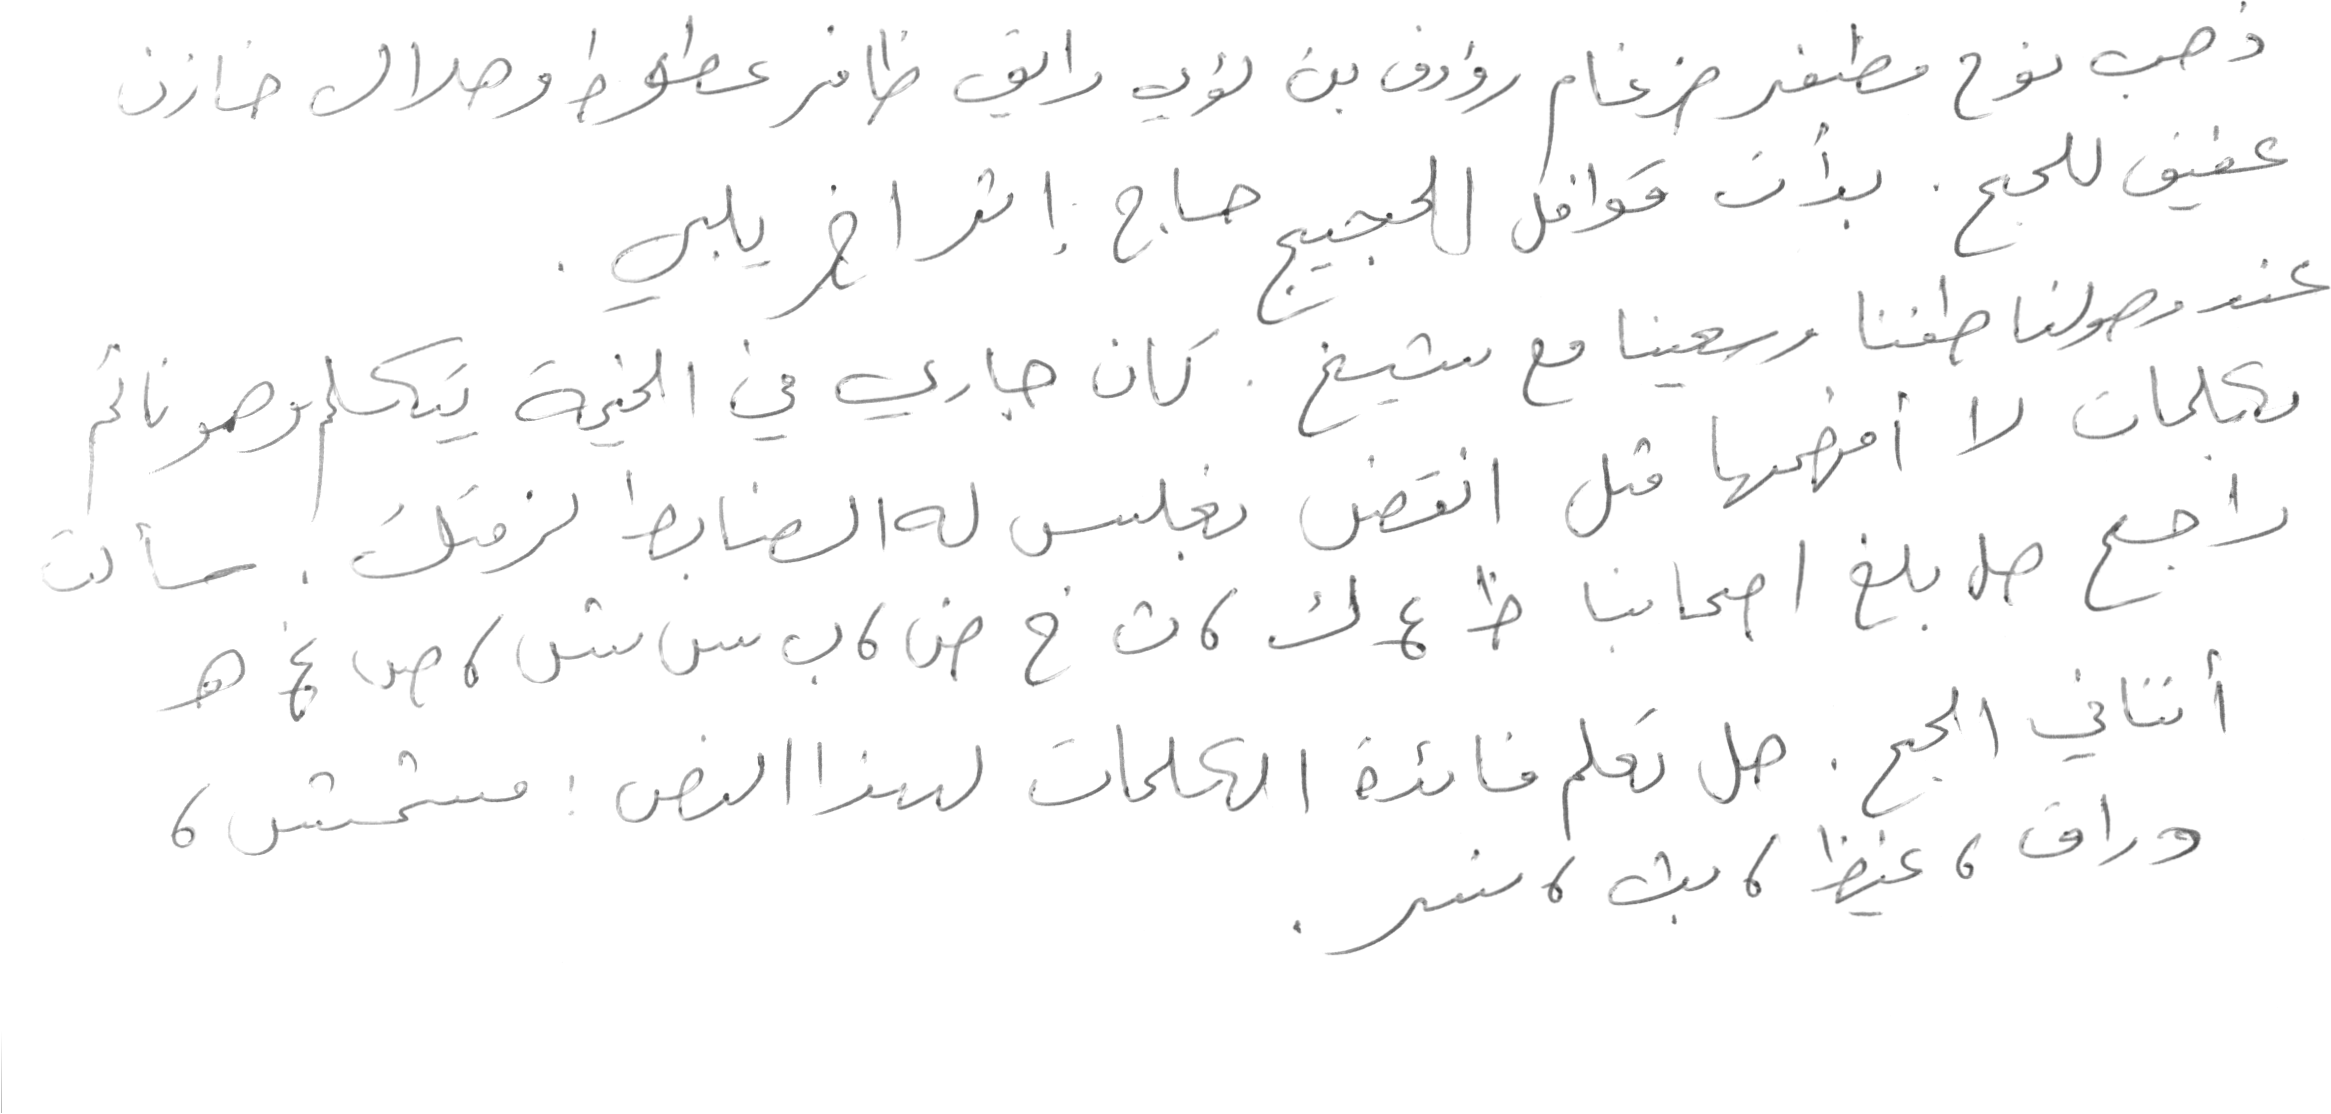 ذهب نوح مظفر ضرغام رؤوف بن لؤي رايق ظافر عطوط وهلال خازن
عفيف للحج. بدأت قوافل الحجيج حاج إثر اخر يلبي.
عند وصولنا طفنا وسعينا مع شيخ. كان جاري في الخيمة يتكلم وهو نائم
بكلمات لا أفهمها مثل انقض بغلس له الضابط لزمتك. سألت
راجح هل بلغ اصحابنا ظ ع ك، ث خ ض، ب س ش، ص غ هـ
أتتافي الحج. هل تعلم فائدة الكلمات لهذا النص: مستحتش،
وراق، غيظ، بث، نسر.